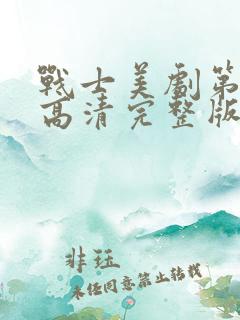 戰士美劇第
高清完整版
非珏
未经同意禁止转载